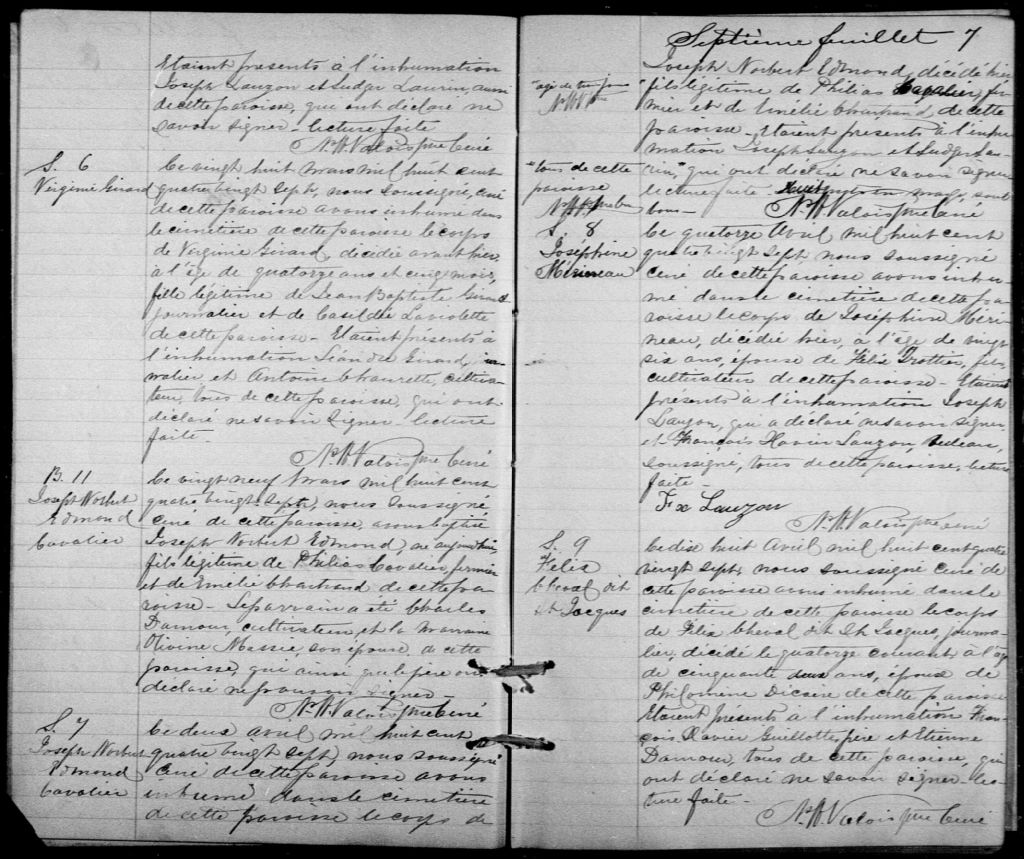 Etaient présents à l'inhumation
Joseph Lauzon et Ludger Laurin, aussi
de cette paroisse, qui ont déclaré ne
savoir signer - lecture faite
N. H. Valois ptre Curé
S. 6
Virginie Girard
Ce vingt huit Mars mil huit cent
quatre vingt sept, nous soussigné, curé
de cette paroisse avons inhumé dans
le cimetière de cette paroisse le corps
de Virginie Girard, décédée avant hier,
à l'âge de quatorze ans et cinq mois,
fille légitime de Jean Baptiste Girard
journalier et de Casildée Laviolette
de cette paroisse - Etaient présents à
l'inhumation Léandre Girard, jour-
nalier et Antoine Chaurette, cultiva-
teur, tous de cette paroisse, qui ont
déclaré ne savoir signer - lecture
faite -
N. H. Valois ptre Curé
B. 11
Joseph Norbert
Edmond
Cavalier
Ce vingt neuf Mars mil huit cent
quatre vingt sept, nous soussigné
curé de cette paroisse, avons baptisé
Joseph Norbert Edmond, né aujourd'hui,
fils légitime de Philias Cavalier, fermier
et de Emélie Chartrand de cette pa-
roisse - Le parrain a été Charles
Damour, cultivateur, et la marraine
Olivine Massie, son épouse, de cette
paroisse, qui ainsi que le père ont
déclaré ne pouvoir signer -
N. H. Valois ptre Curé
S. 7
Joseph Norbert
Edmond
Cavalier
Ce deux avril mil huit cent
quatre vingt sept, nous soussigné
curé de cette paroisse avons
inhumé dans le cimetière
de cette paroisse le corps de
Septième feuillet 7
Joseph Norbert Edmond, décédé hier
"agé de trois jours
N. H. V. ptre
fils légitime de Philias Cavalier, fer-
mier et de Emélie Chartrand de cette
paroisse - Etaient présents à l'inhu-
mation Joseph Lauzon et Ludger Lau-
"tous de cette
paroisse
rin," qui ont déclaré ne savoir signer
lecture faite
bons - N. H. Valois ptre Curé
S. 8
Joséphine
Mérineau
Ce quatorze Avril mil huit cent
quatre vingt sept nous soussigné
curé de cette paroisse avons inhu-
mé dans le cimetière de cette pa-
roisse le corps de Joséphine Méri-
neau, décédée hier, à l'âge de vingt
six ans, épouse de Félix Trottier, fils,
cultivateur de cette paroisse - Etaient
présents à l'inhumation Joseph
Lauzon, qui a déclaré ne savoir signer
et François Xavier Lauzon, bedeau,
soussigné, tous de cette paroisse, lecture
faite -
F x Lauzon
N. H. Valois ptre Curé
S. 9
Félix
Cheval dit
St Jacques
Ce dix huit Avril mil huit cent quatre
vingt sept, nous soussigné curé de
cette paroisse avons inhumé dans le
cimetière de cette paroisse le corps
de Félix Cheval dit St Jacques, journa-
lier, décédé le quatorze courant, à l'age
de cinquante deux ans, époux de
Philomène Dicaire de cette paroisse
Etaient présents à l'inhumation Fran-
çois Xavier Guillotte, père et Etienne
Damour, tous de cette paroisse, qui
ont déclaré ne savoir signer lec-
ture faite -
N. H. Valois ptre Curé